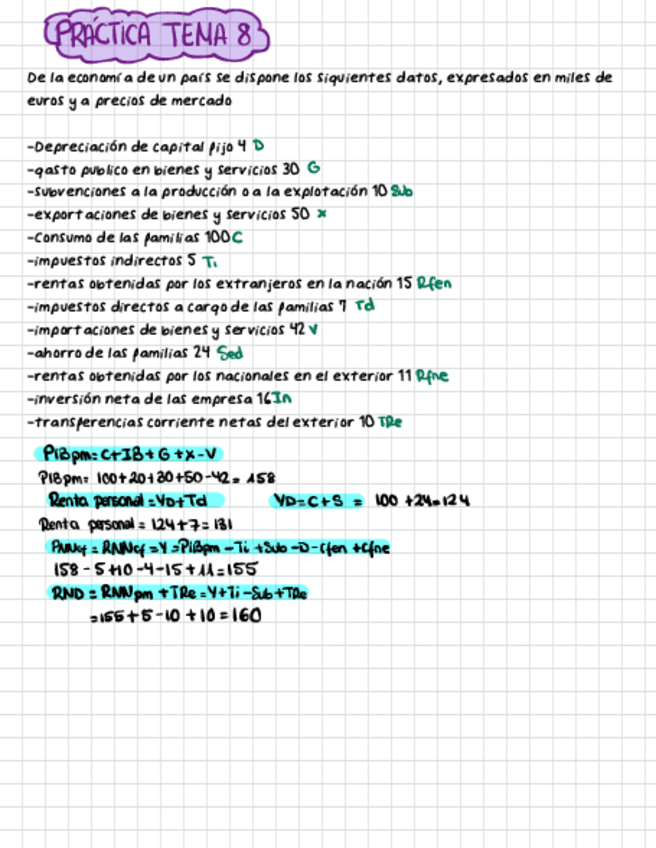 PRÁCTICA TEMA 8
De la economía de un país se dispone los siguientes datos, expresados en miles de
euros y a precios de mercado
-Depreciación de capital fijo 4 D
-gasto publico en bienes y servicios 30 G
-subvenciones a la producción o a la explotación 10 Sub
-exportaciones de bienes y servicios 50 x
-Consumo de las familias 100 C
-impuestos indirectos 5 Ti
-rentas obtenidas por los extranjeros en la nación 15 Rfen
-impuestos directos a cargo de las familias 7 Td
-importaciones de bienes y servicios 42 V
-ahorro de las familias 24 Sed
-rentas obtenidas por los nacionales en el exterior 11 Rfne
-inversión neta de las empresa 16 In
-transferencias corriente netas del exterior 10 TRe
PIBpm = C+IB+G+x-V
PIBpm= 100+20+30+50-42= 158
Renta personal = YD+Td YD=C+S = 100 +24=124
Renta personal = 124+7=131
PNNcf = RNNcf =Y =PIBpm -Ti +Sub -D-cfen +cfne
158 - 5+10 -4-15+11=155
RND = RNNpm +TRe =Y+Ti-Sub+TRe
=155+5-10+10=160